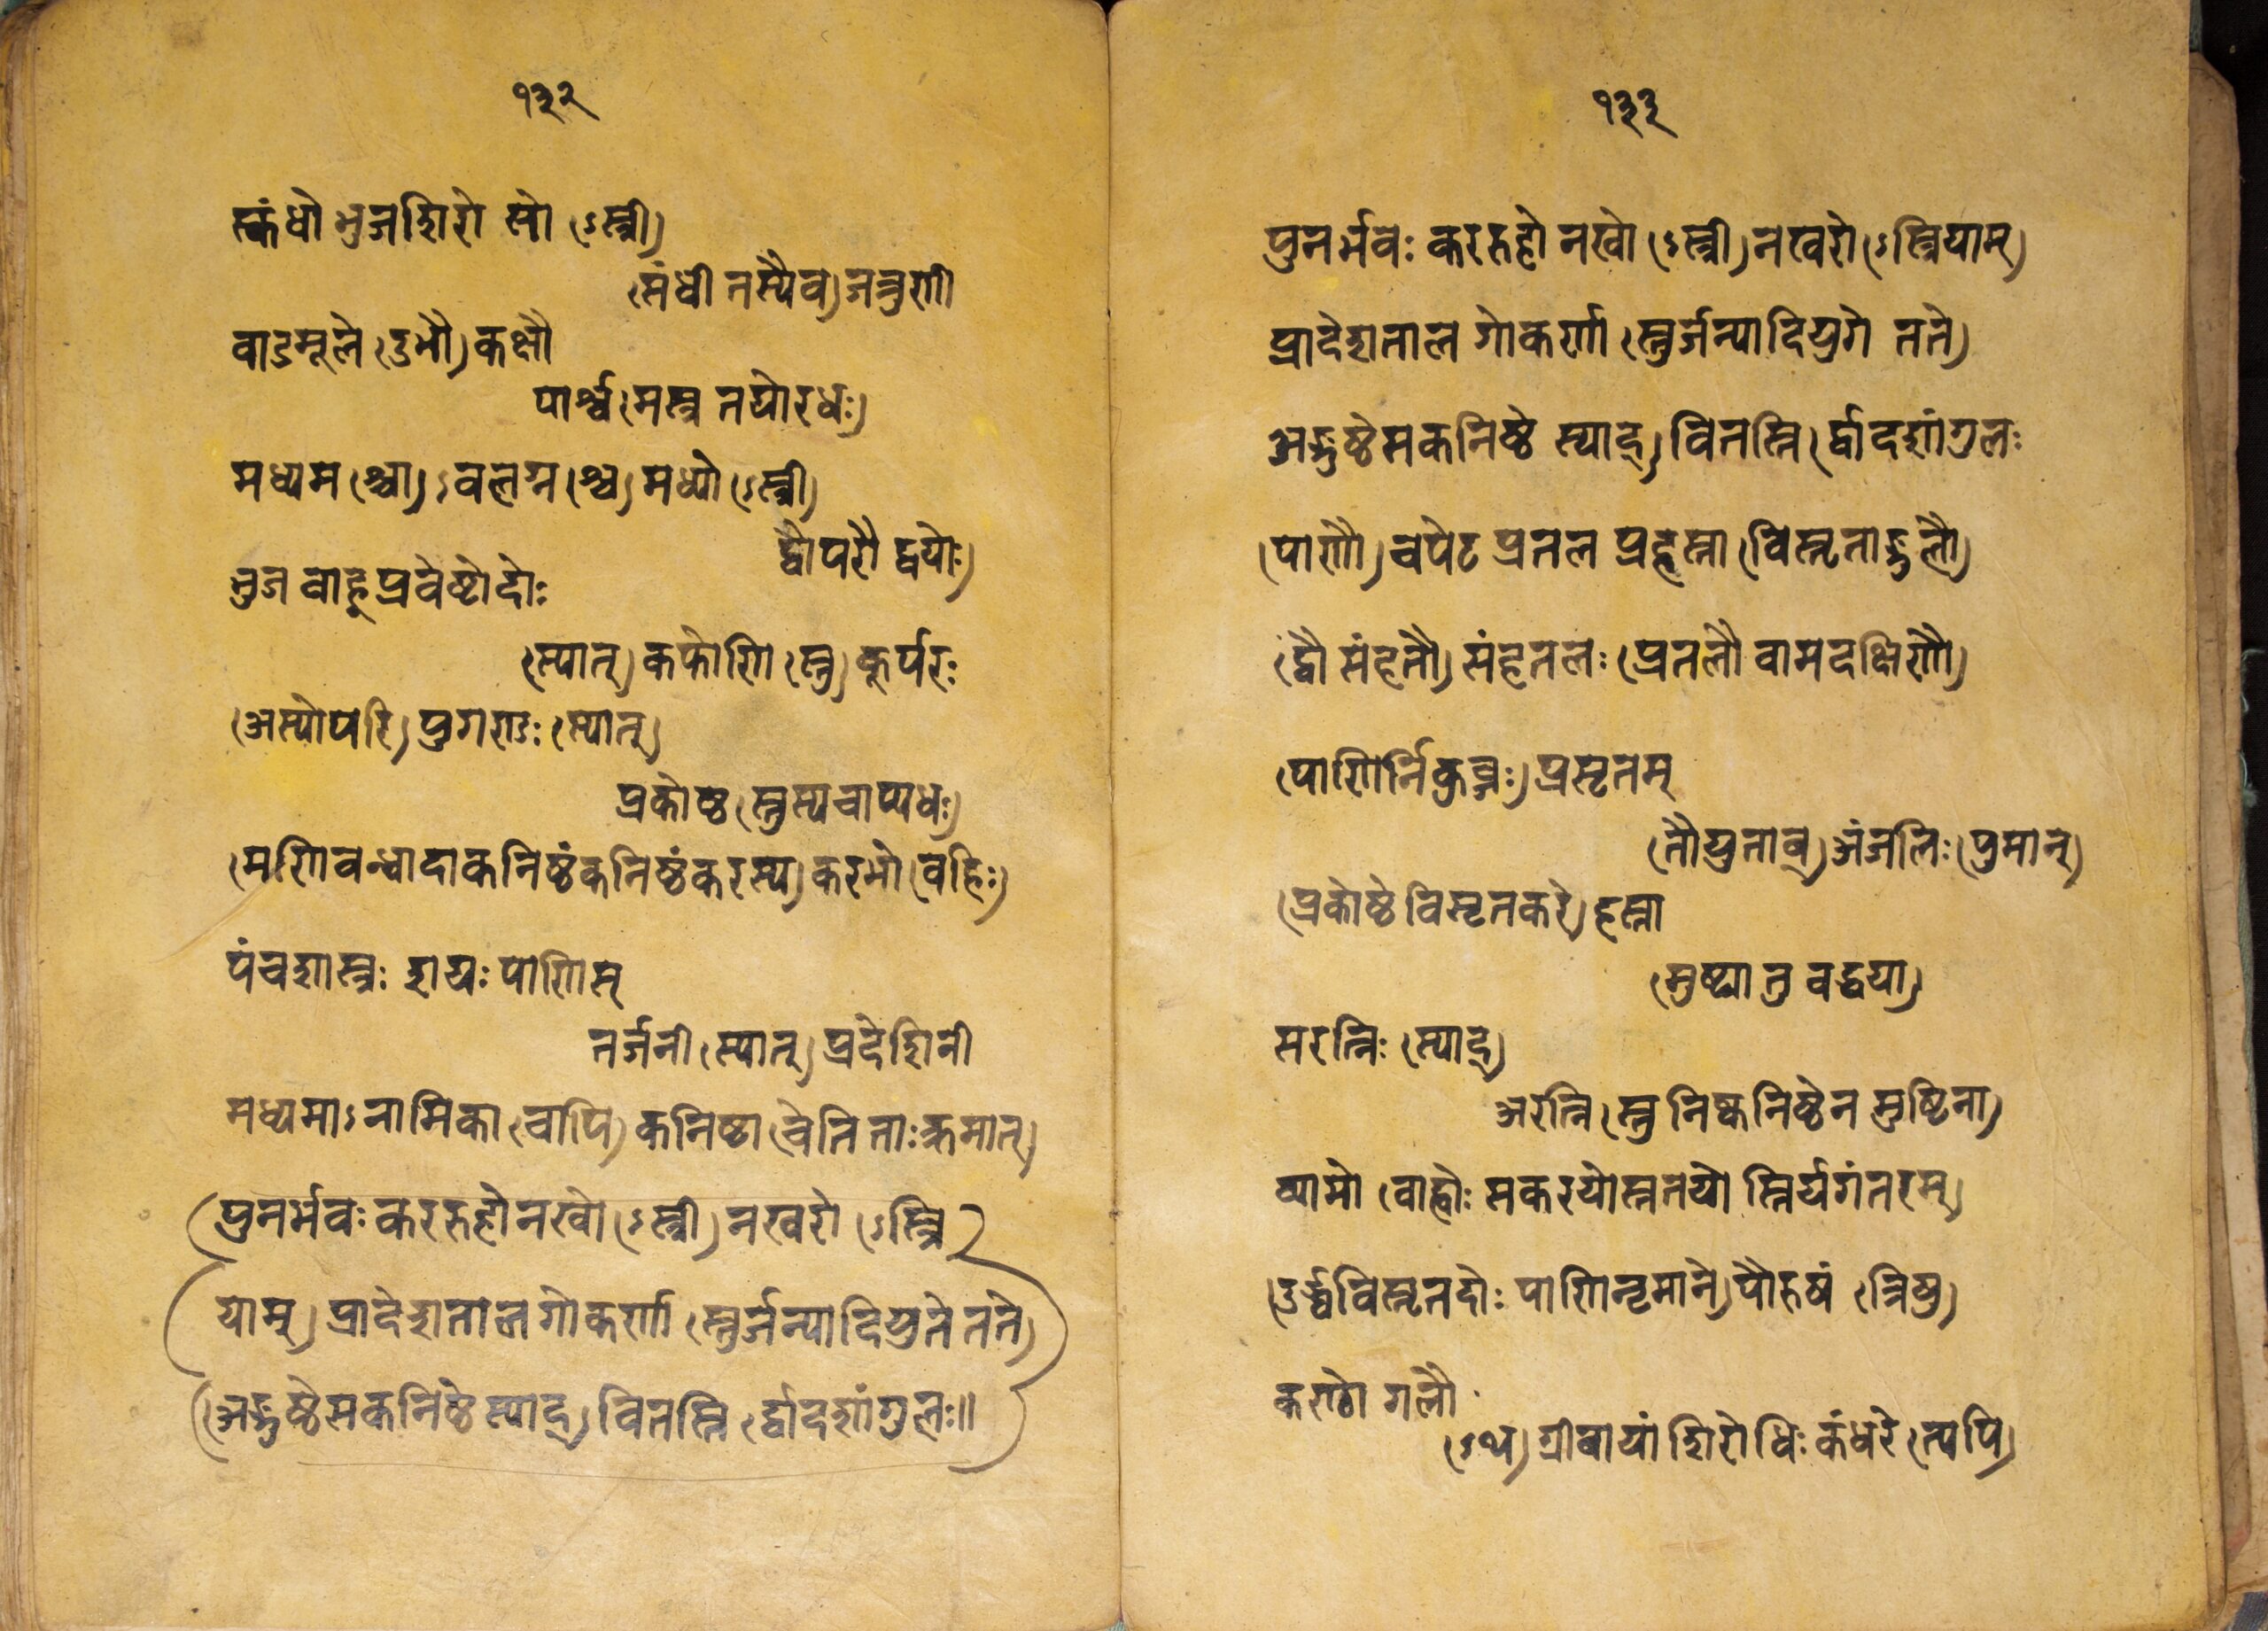 १३२
स्कंधो भुजशिरो सो (ऽस्त्री)
(संधी तस्यैव) जत्रुणी
वाडमूले (उभौ) कक्षौ
पार्श्व (मस्त्र तयोरधः)
मध्यम (श्चा) ऽवलग्न (श्च) मध्यो (ऽस्त्री)
द्वौपरौ द्वयोः)
भुज वाहू प्रवेष्टोदोः
(स्यात्) कफोणि (स्तु) कूर्परः
(अस्योपरि) पुगराडः (स्यात्)
प्रकोष्ठ (स्तुस्यचाप्यधः)
(मणिवन्धादाकनिष्ठंकनिष्ठंकरस्य) करभो (वहिः)
पंचशास्त्रः शयः पाणिस्
तर्जनी (स्यात्) प्रदेशिनी
मध्यमाऽनामिका (चापि) कनिष्ठा (चेति ताःक्रमात्)
(पुनर्भवः कररुहोनखो (ऽस्त्री) नखरो (ऽस्त्रि
याम्) प्रादेशतालगोकर्णा (स्तुर्जन्यादियुते तते)
(अङ्गुष्ठेसकनिष्ठे स्याद्) वितस्ति (र्द्वादशांगुलः॥
१३३
पुनर्भवः कररुहो नखो (ऽस्त्री) नखरो (ऽस्त्रियाम्)
प्रादेशताल गोकर्णा (स्तुर्जन्यादियुगे तते)
अङ्गुष्ठेसकनिष्ठे स्याद्) वितस्ति (र्द्वादशांगुलः
(पाणौ) चपेट प्रतल प्रहस्ता (विस्तृताङ्गुलौ)
(द्वौ संहतौ) संहतलः (प्रतलौ वामदक्षिणौ)
(पाणिर्निकुब्जः) प्रसृतम्
(तौयुताव्) अंजलिः (पुमान्)
(प्रकोष्ठे विसृतकरे) हस्ता
(मुष्ट्यातु वद्धया)
सरत्निः (स्याद्)
अरत्नि (स्तु निष्कनिष्ठेन मुष्टिना)
व्यामो (वाह्वोः सकरयोस्ततयो स्तिर्यगंतरम्)
(उर्द्ध्वविस्तृतदोः पाणिनृमाने) पौरुषं (त्रिषु)
कण्ठो गलौ
(ऽथ) ग्रीवायां शिरोधिः कंधरे (त्यपि)